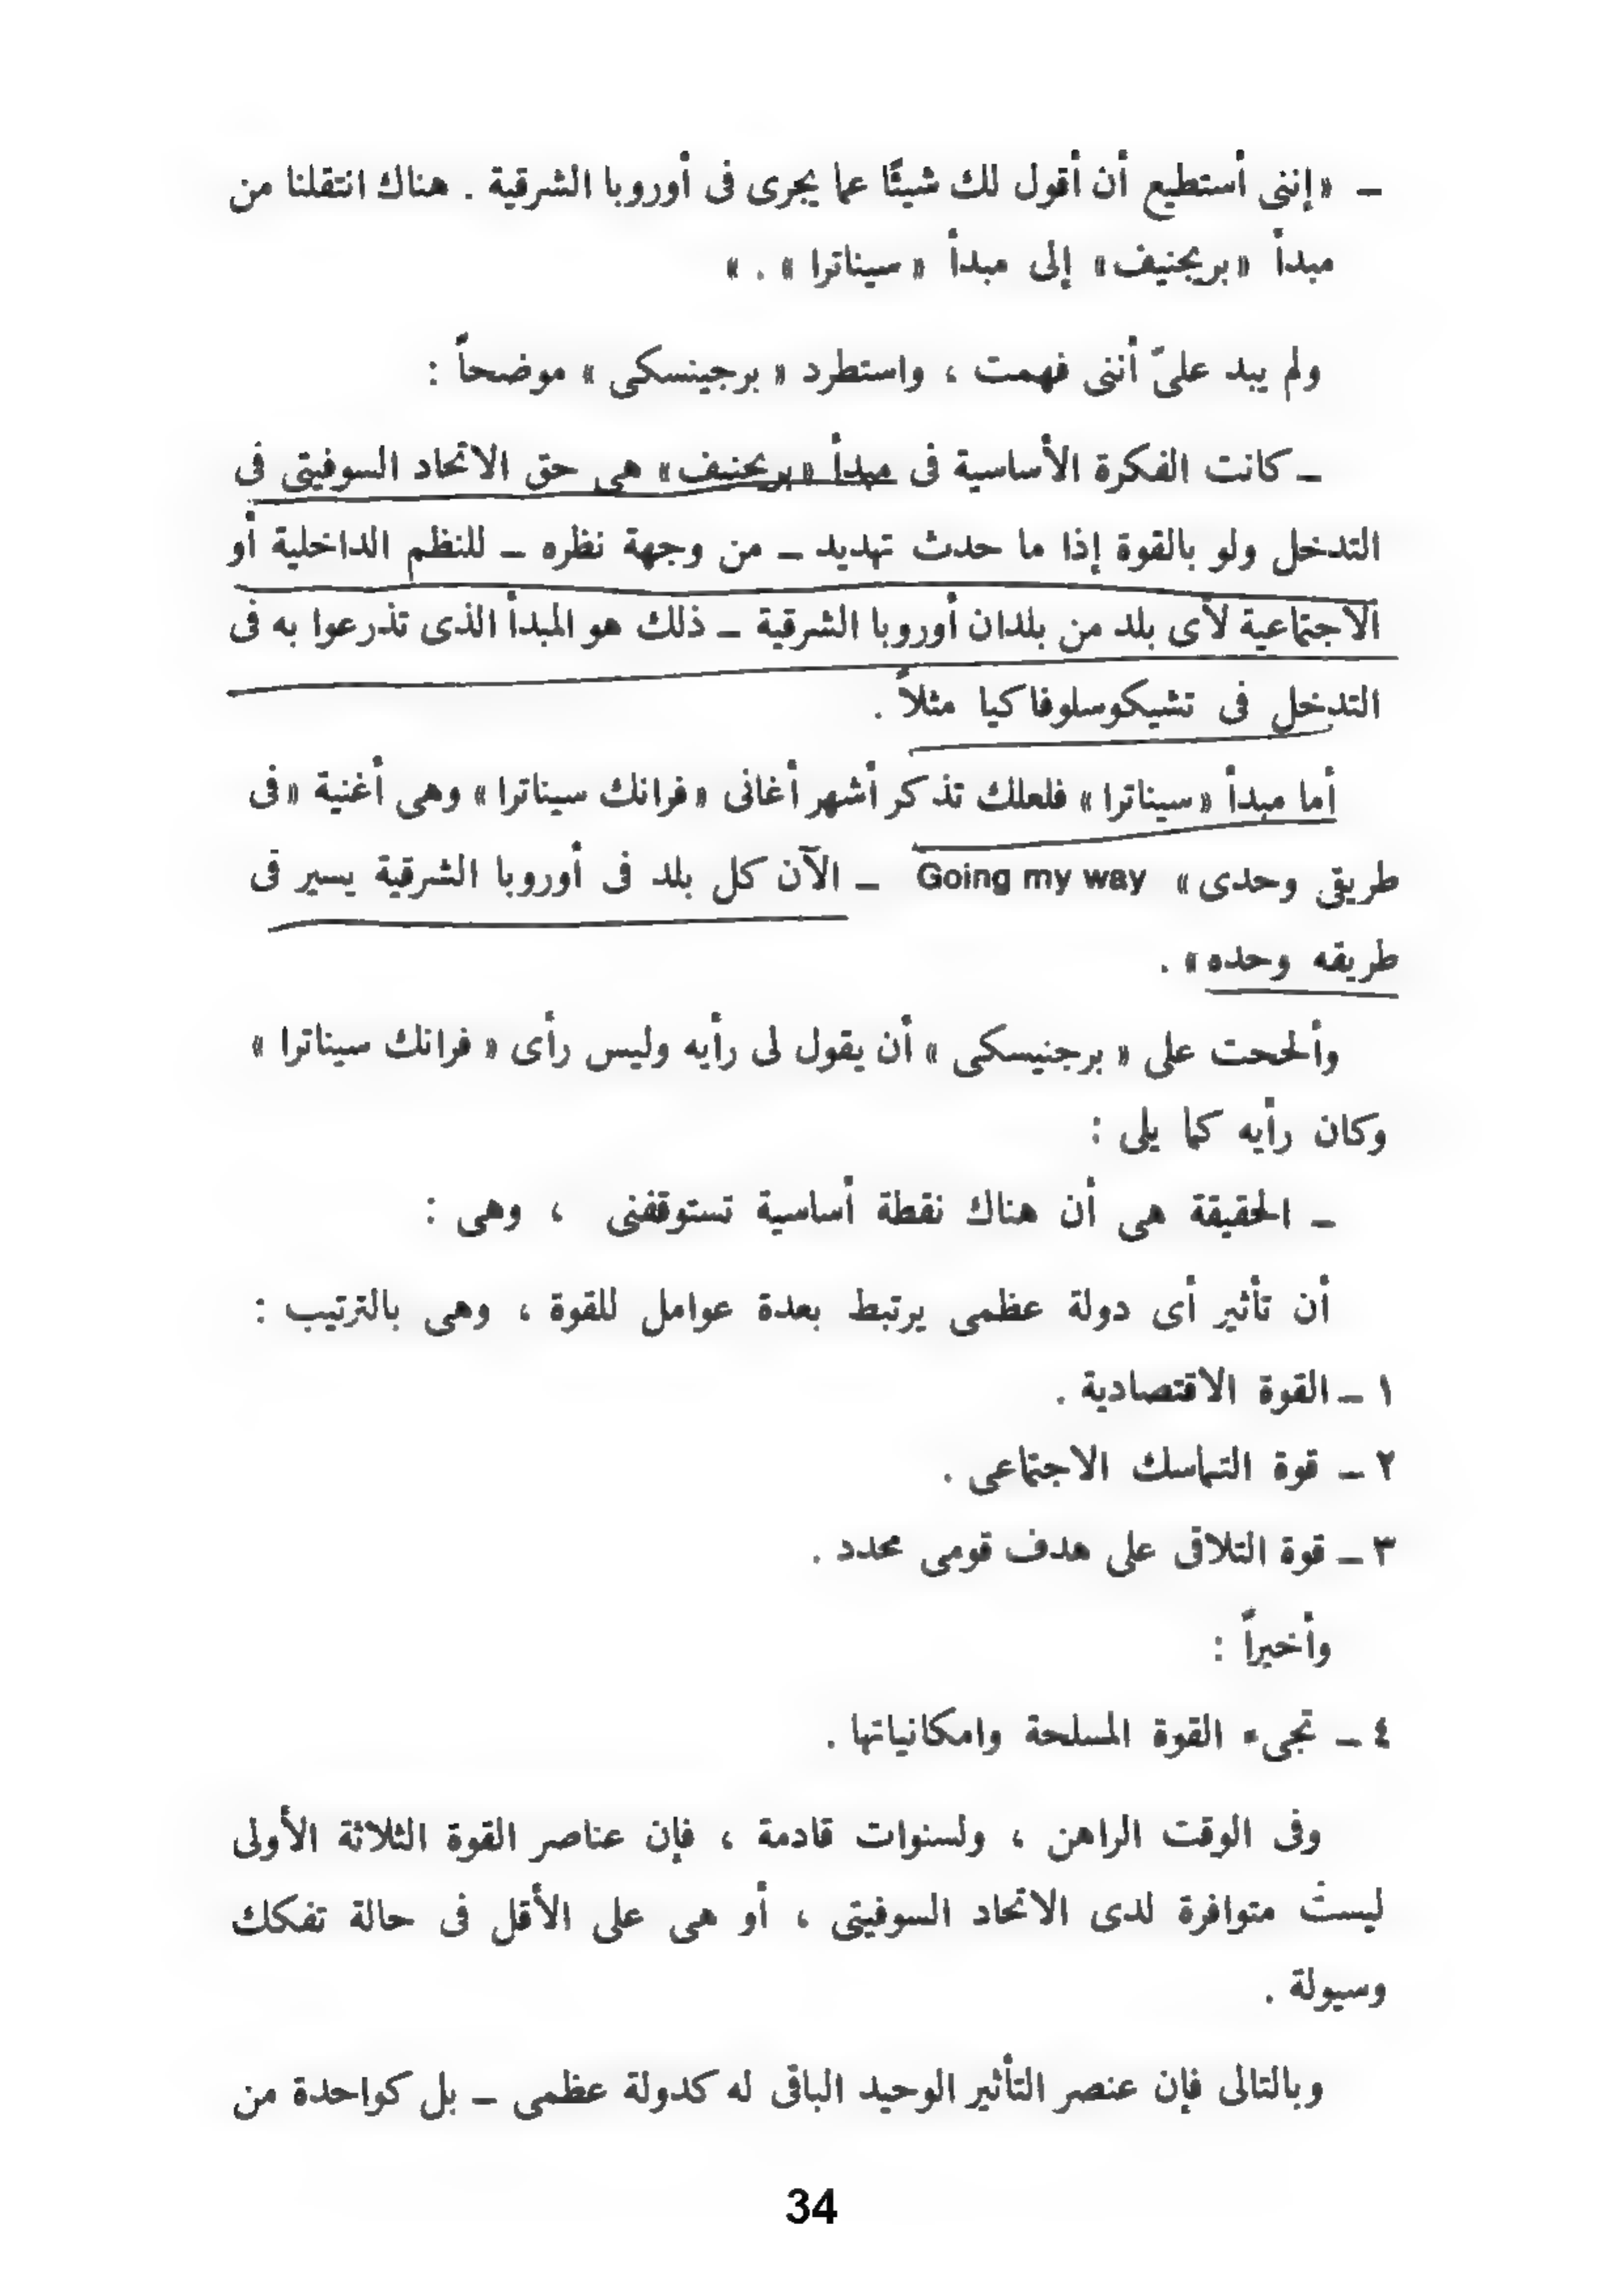 ـ «إننى أستطيع أن أقول لك شيئًا عما يجرى فى أوروبا الشرقية . هناك انتقلنا من
مبدأ «بريجنيف» إلى مبدأ «سيناترا» . »
ولم يبد علىّ أننى فهمت ، واستطرد « برجينسكى » موضحاً :
ـ كانت الفكرة الأساسية فى مبدأ «بريجنيف» هى حق الاتحاد السوفيتى فى
التدخل ولو بالقوة إذا ما حدث تهديد ـ من وجهة نظره ـ للنظم الداخلية أو
الاجتماعية لأى بلد من بلدان أوروبا الشرقية ـ ذلك هو المبدأ الذى تذرعوا به فى
التدخل فى تشيكوسلوفاكيا مثلاً .
أما مبدأ «سيناترا» فلعلك تذكر أشهر أغانى «فرانك سيناترا» وهى أغنية «فى
طريقى وحدى» Going my way ـ الآن كل بلد فى أوروبا الشرقية يسير فى
طريقه وحده» .
وألححت على « برجنيسكى » أن يقول لى رأيه وليس رأى « فرانك سيناترا »
وكان رأيه كما يلى :
ـ الحقيقة هى أن هناك نقطة أساسية تستوقفنى ، وهى :
أن تأثير أى دولة عظمى يرتبط بعدة عوامل للقوة ، وهى بالترتيب :
١ ـ القوة الاقتصادية .
٢ ـ قوة التماسك الاجتماعى .
٣ ـ قوة التلاقى على هدف قومى محدد .
وأخيراً :
٤ ـ تجىء القوة المسلحة وامكانياتها .
وفى الوقت الراهن ، ولسنوات قادمة ، فإن عناصر القوة الثلاثة الأولى
ليست متوافرة لدى الاتحاد السوفيتى ، أو هى على الأقل فى حالة تفكك
وسيولة .
وبالتالى فإن عنصر التأثير الوحيد الباقى له كدولة عظمى ـ بل كواحدة من
34